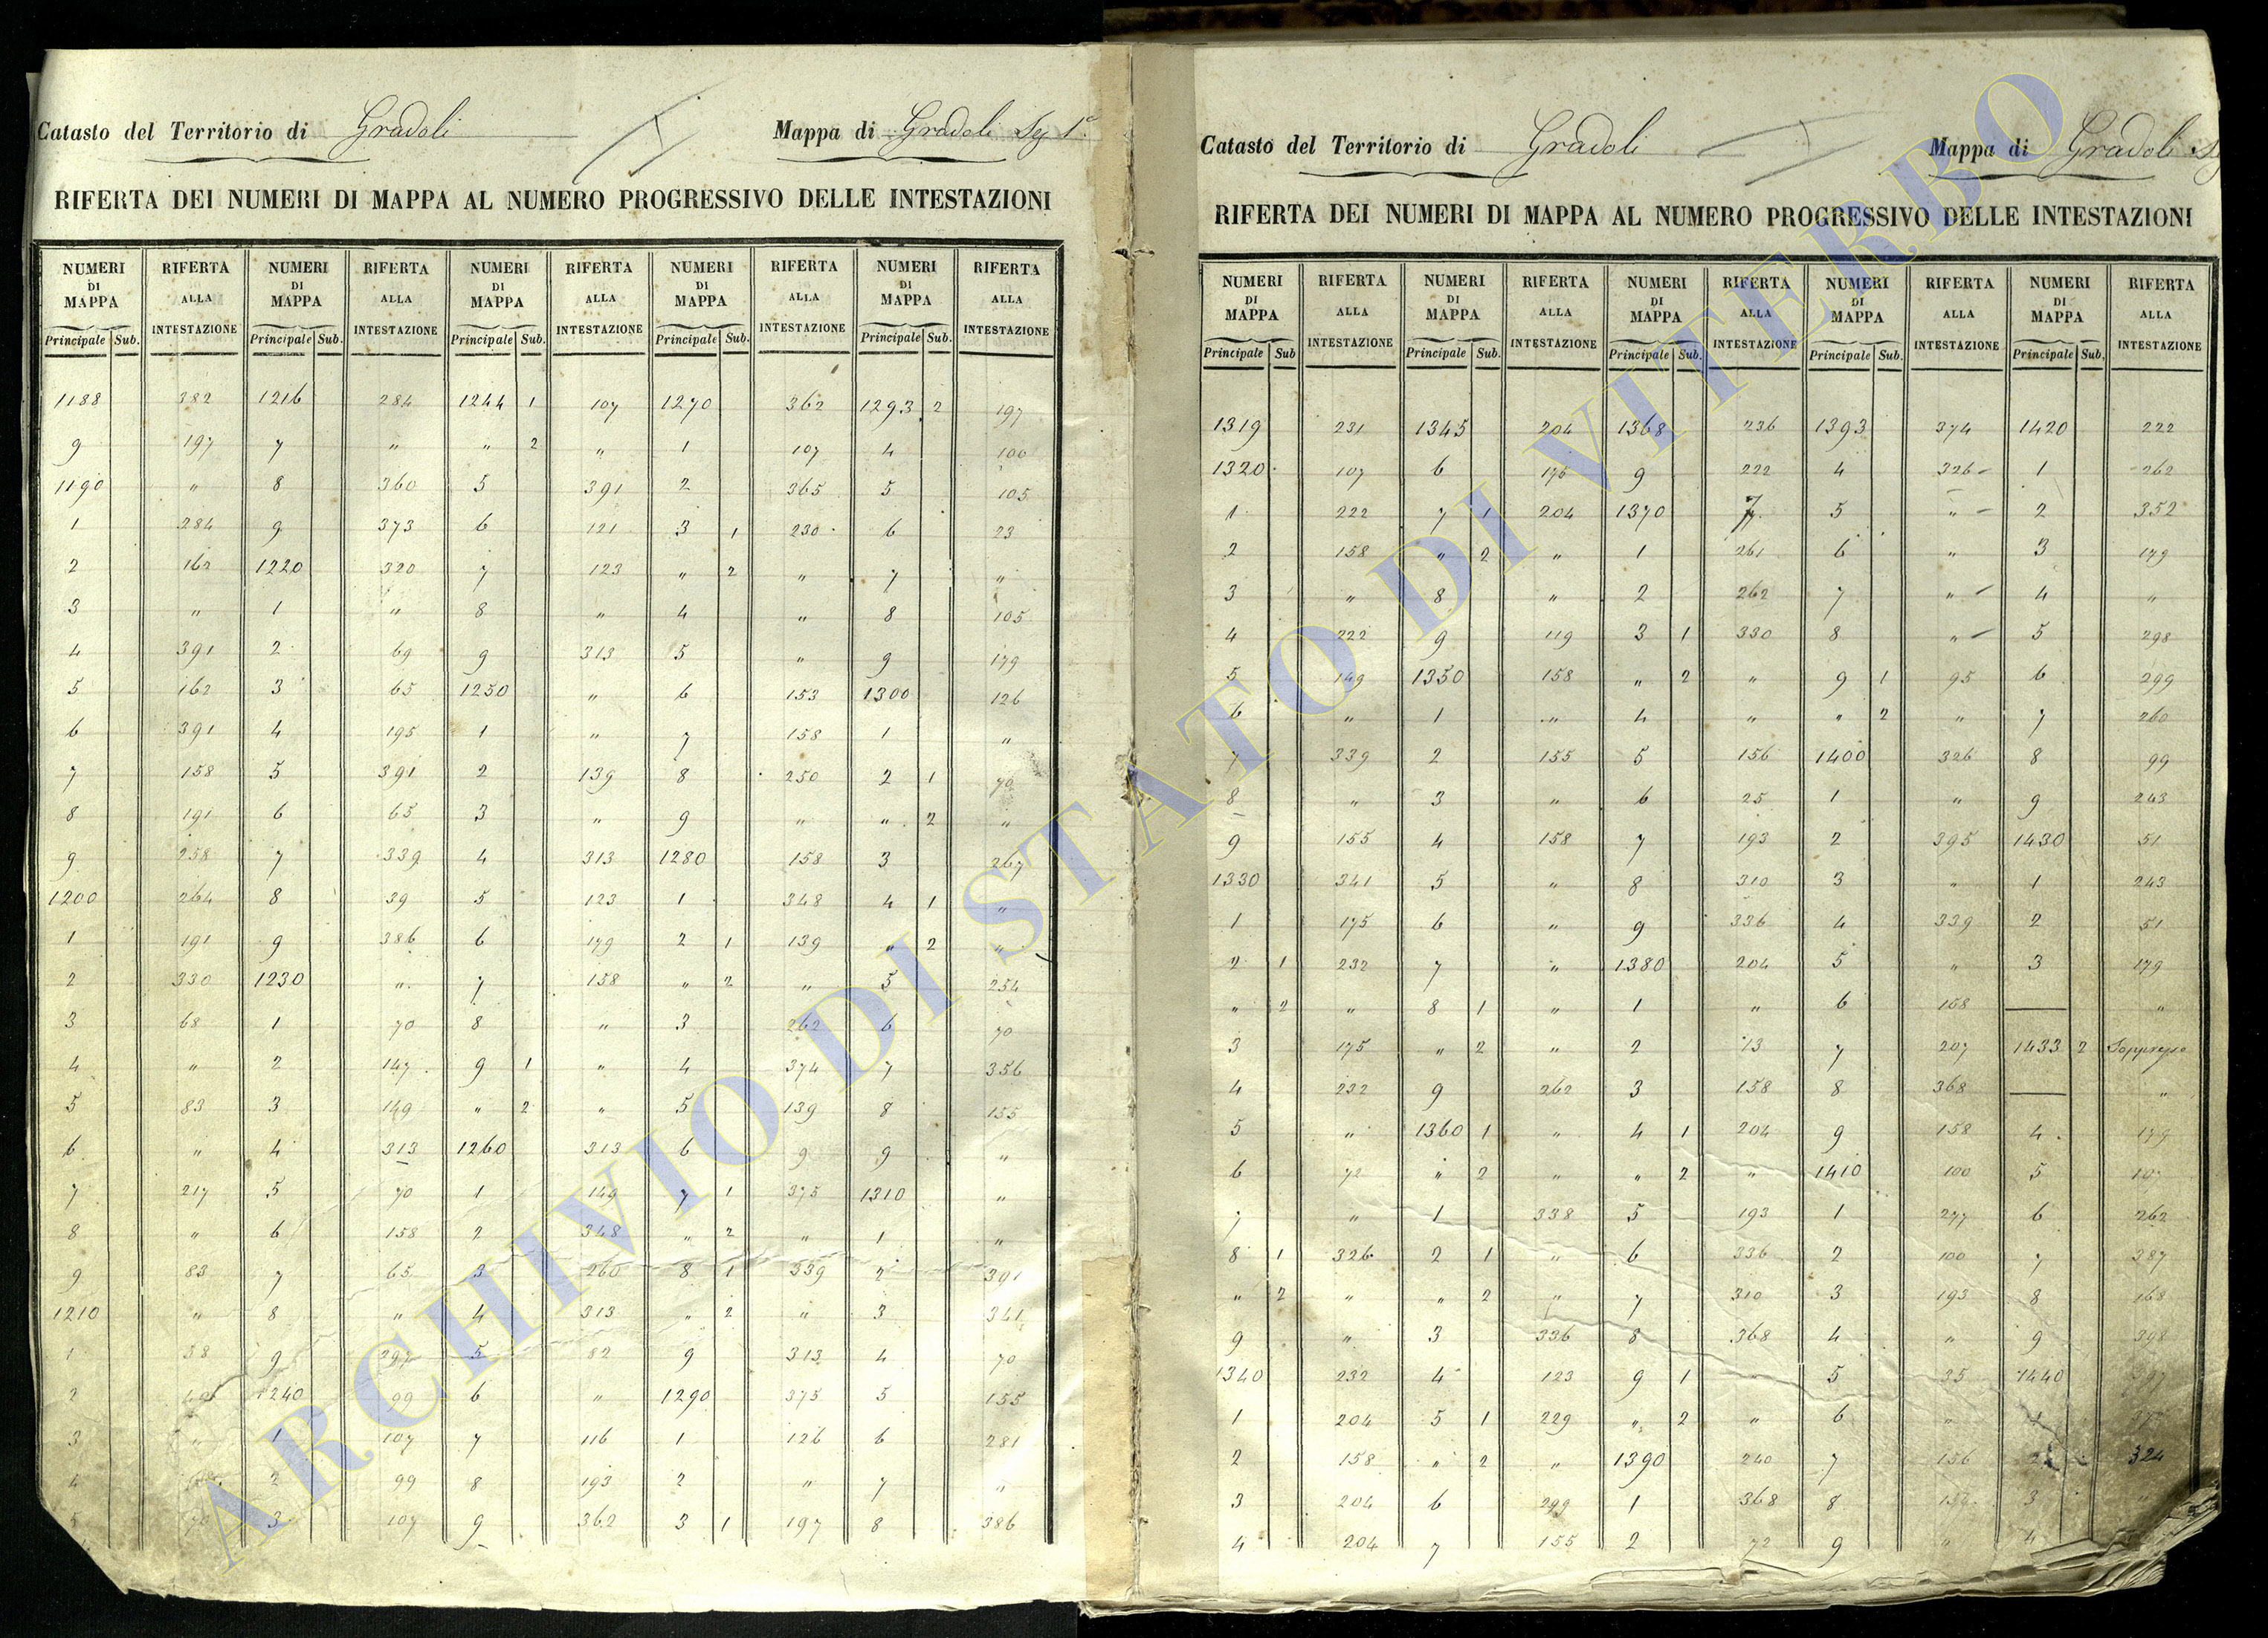 Catasto del Territorio di Gradoli Mappa di Gradoli Sez 1ª
RIFERTA DEI NUMERI DI MAPPA AL NUMERO PROGRESSIVO DELLE INTESTAZIONI
NUMERI DI MAPPA RIFERTA ALLA INTESTAZIONE NUMERI DI MAPPA RIFERTA ALLA INTESTAZIONE NUMERI DI MAPPA RIFERTA ALLA INTESTAZIONE NUMERI DI MAPPA RIFERTA ALLA INTESTAZIONE NUMERI DI MAPPA RIFERTA ALLA INTESTAZIONE
Principale Sub. Principale Sub. Principale Sub. Principale Sub. Principale Sub.
1188 382 1216 284 1244 1 107 1270 362 1293 2 197
9 197 7 " " 2 " 1 107 4 100
1190 " 8 360 5 391 2 365 5 105
1 284 9 373 6 121 3 1 230 6 23
2 162 1220 320 7 123 " 2 " 7 "
3 " 1 " 8 " 4 " 8 105
4 391 2 69 9 313 5 " 9 179
5 162 3 65 1250 " 6 153 1300 126
6 391 4 195 1 " 7 158 1 "
7 158 5 391 2 139 8 250 2 1 70
8 191 6 65 3 " 9 " " 2 "
9 258 7 339 4 313 1280 158 3 267
1200 264 8 39 5 123 1 348 4 1 "
1 191 9 386 6 179 2 1 139 " 2 "
2 330 1230 " 7 158 " 2 " 5 254
3 68 1 70 8 " 3 262 6 70
4 " 2 147 9 1 " 4 374 7 356
5 83 3 149 " 2 " 5 139 8 155
6 " 4 313 1260 313 6 9 9 "
7 217 5 70 1 149 7 1 375 1310 "
8 " 6 158 2 348 " 2 " 1 "
9 83 7 65 3 260 8 1 339 2 391
1210 " 8 " 4 313 " 2 " 3 341
1 58 9 297 5 82 9 313 4 70
2 1240 99 6 " 1290 375 5 155
3 " 1 107 7 116 1 126 6 281
4 2 99 8 193 2 " 7 "
5 70 3 107 9 362 3 1 197 8 386
Catasto del Territorio di Gradoli Mappa di Gradoli S
RIFERTA DEI NUMERI DI MAPPA AL NUMERO PROGRESSIVO DELLE INTESTAZIONI
NUMERI DI MAPPA RIFERTA ALLA INTESTAZIONE NUMERI DI MAPPA RIFERTA ALLA INTESTAZIONE NUMERI DI MAPPA RIFERTA ALLA INTESTAZIONE NUMERI DI MAPPA RIFERTA ALLA INTESTAZIONE NUMERI DI MAPPA RIFERTA ALLA INTESTAZIONE
Principale Sub Principale Sub. Principale Sub. Principale Sub. Principale Sub.
1319 231 1345 204 1368 236 1393 374 1420 222
1320 107 6 175 9 222 4 326 1 262
1 222 7 1 204 1370 7 5 " 2 352
2 158 " 2 " 1 261 6 " 3 179
3 " 8 " 2 262 7 " 4 "
4 222 9 119 3 1 330 8 " 5 298
5 149 1350 158 " 2 " 9 1 95 6 299
6 " 1 " 4 " " 2 " 7 260
7 339 2 155 5 156 1400 326 8 99
8 " 3 " 6 25 1 " 9 243
9 155 4 158 7 193 2 395 1430 51
1330 341 5 " 8 310 3 " 1 243
1 175 6 " 9 336 4 339 2 51
2 1 232 7 " 1380 204 5 " 3 179
" 2 " 8 1 " 1 " 6 158 "
3 175 " 2 " 2 13 7 207 1433 2 Soppresso
4 232 9 262 3 158 8 368 "
5 " 1360 1 " 4 1 204 9 158 4 179
6 72 " 2 " " 2 " 1410 100 5 107
7 " 1 338 5 193 1 277 6 262
8 1 326 2 1 " 6 336 2 100 7 287
" 2 " " 2 " 7 310 3 193 8 168
9 " 3 336 8 368 4 " 9 398
1340 232 4 123 9 1 " 5 35 1440
1 204 5 1 229 " 2 " 6 "
2 158 " 2 " 1390 240 7 156 2 324
3 204 6 299 1 368 8 3
4 204 7 155 2 72 9 " 4
ARCHIVIO DI STATO DI VITERBO